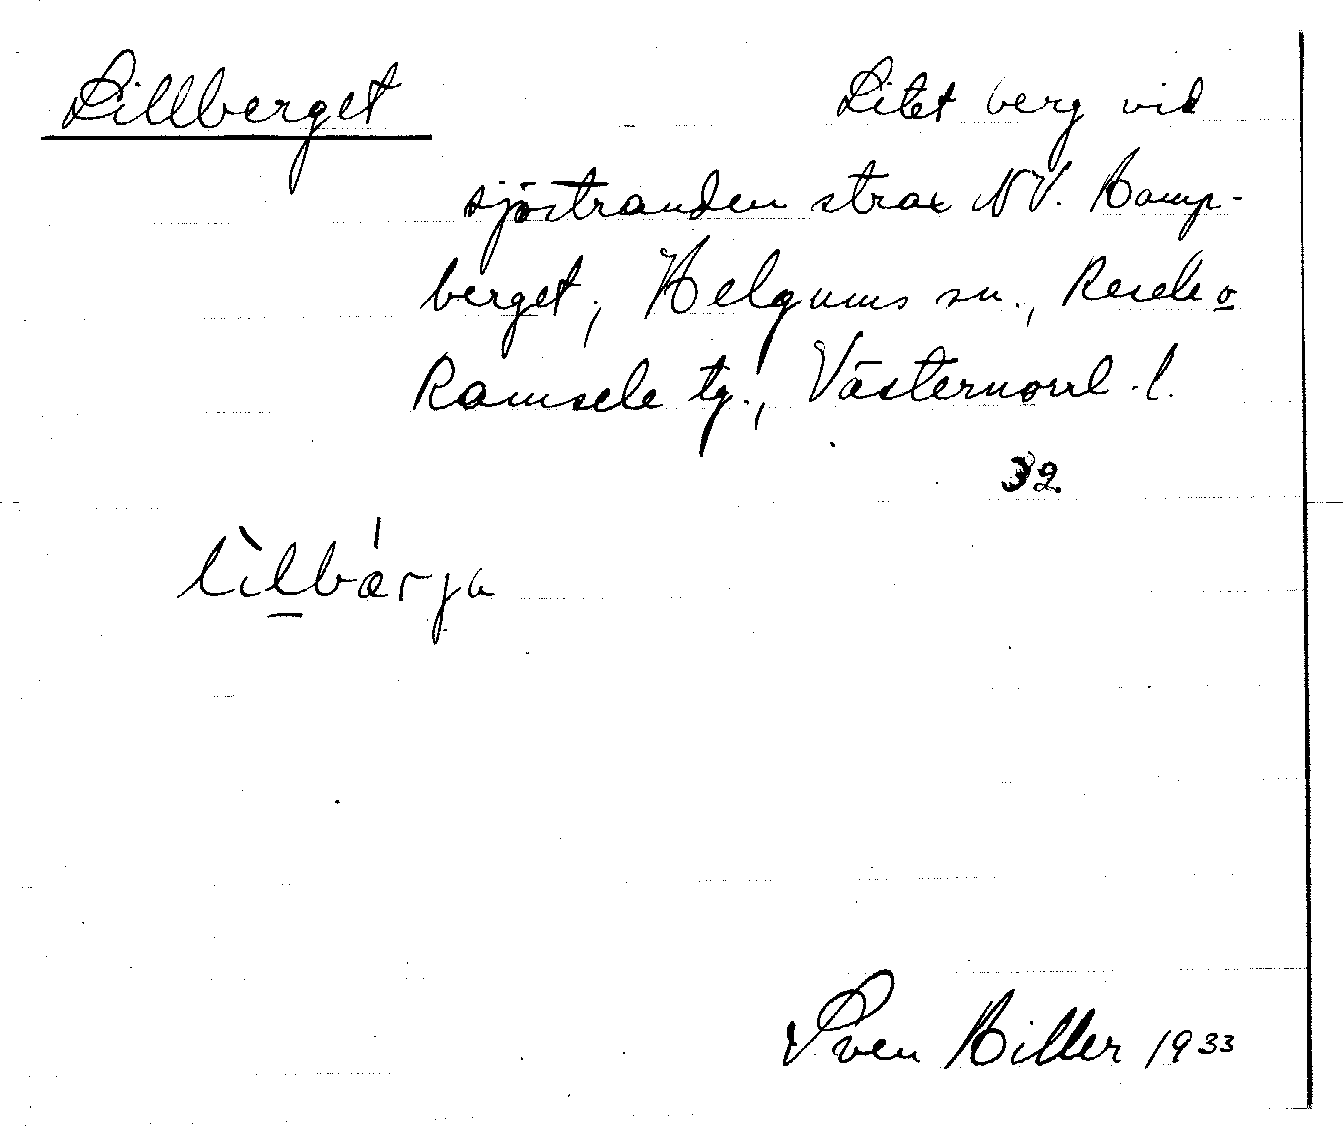 Lillberget
Litet berg vid
sjöstranden strax NV. Kamp-
berget, Helgums sn., Resele o
Ramsele tg., Västernorrl. l.
32.
lìlbárja
Sven Hiller 1933